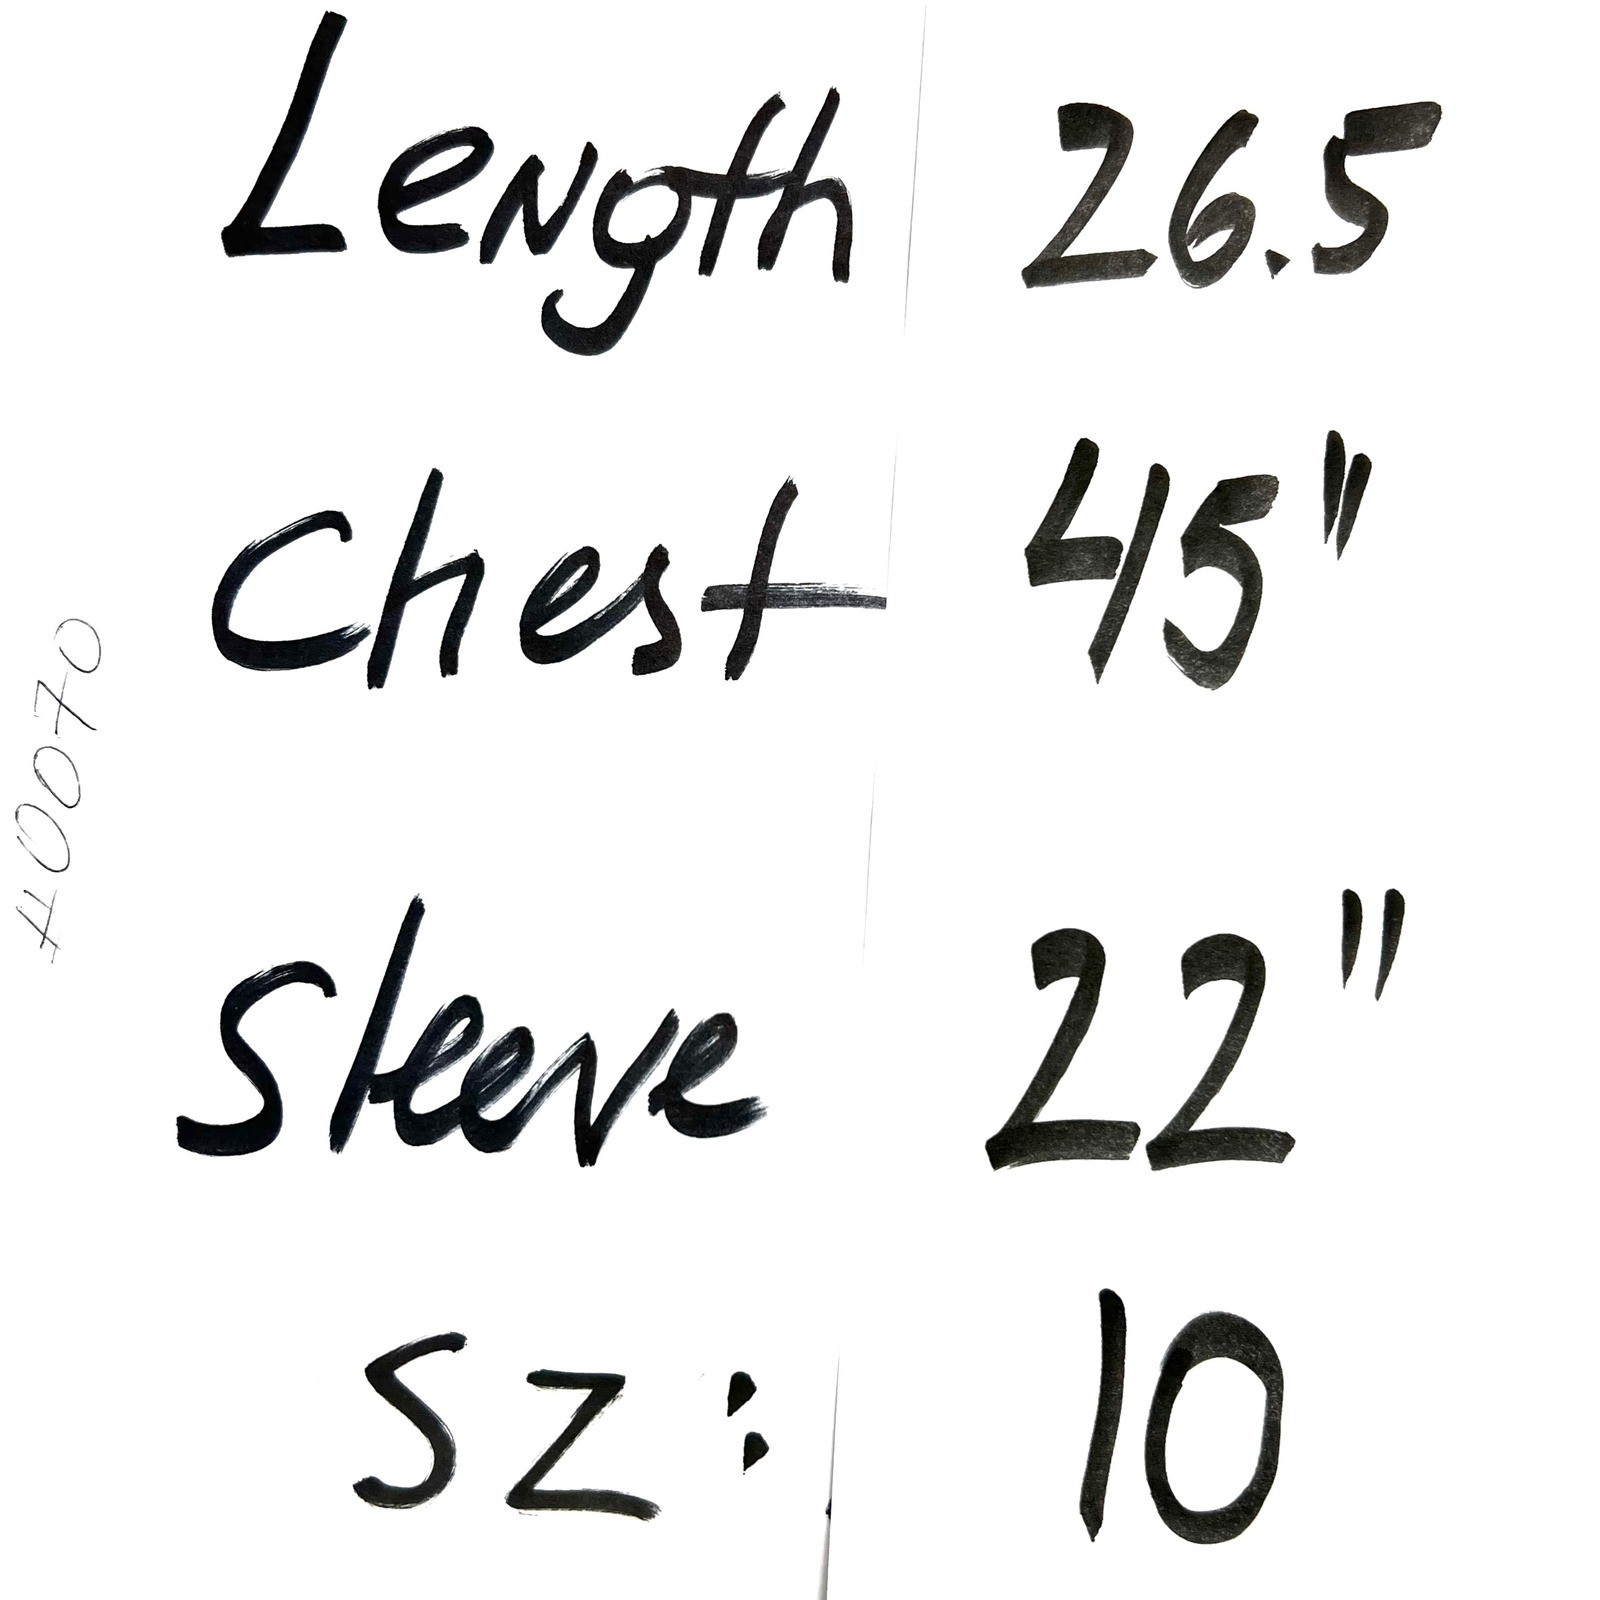 Length 26.5
Chest 45"
Sleeve 22"
SZ: 10
#0070